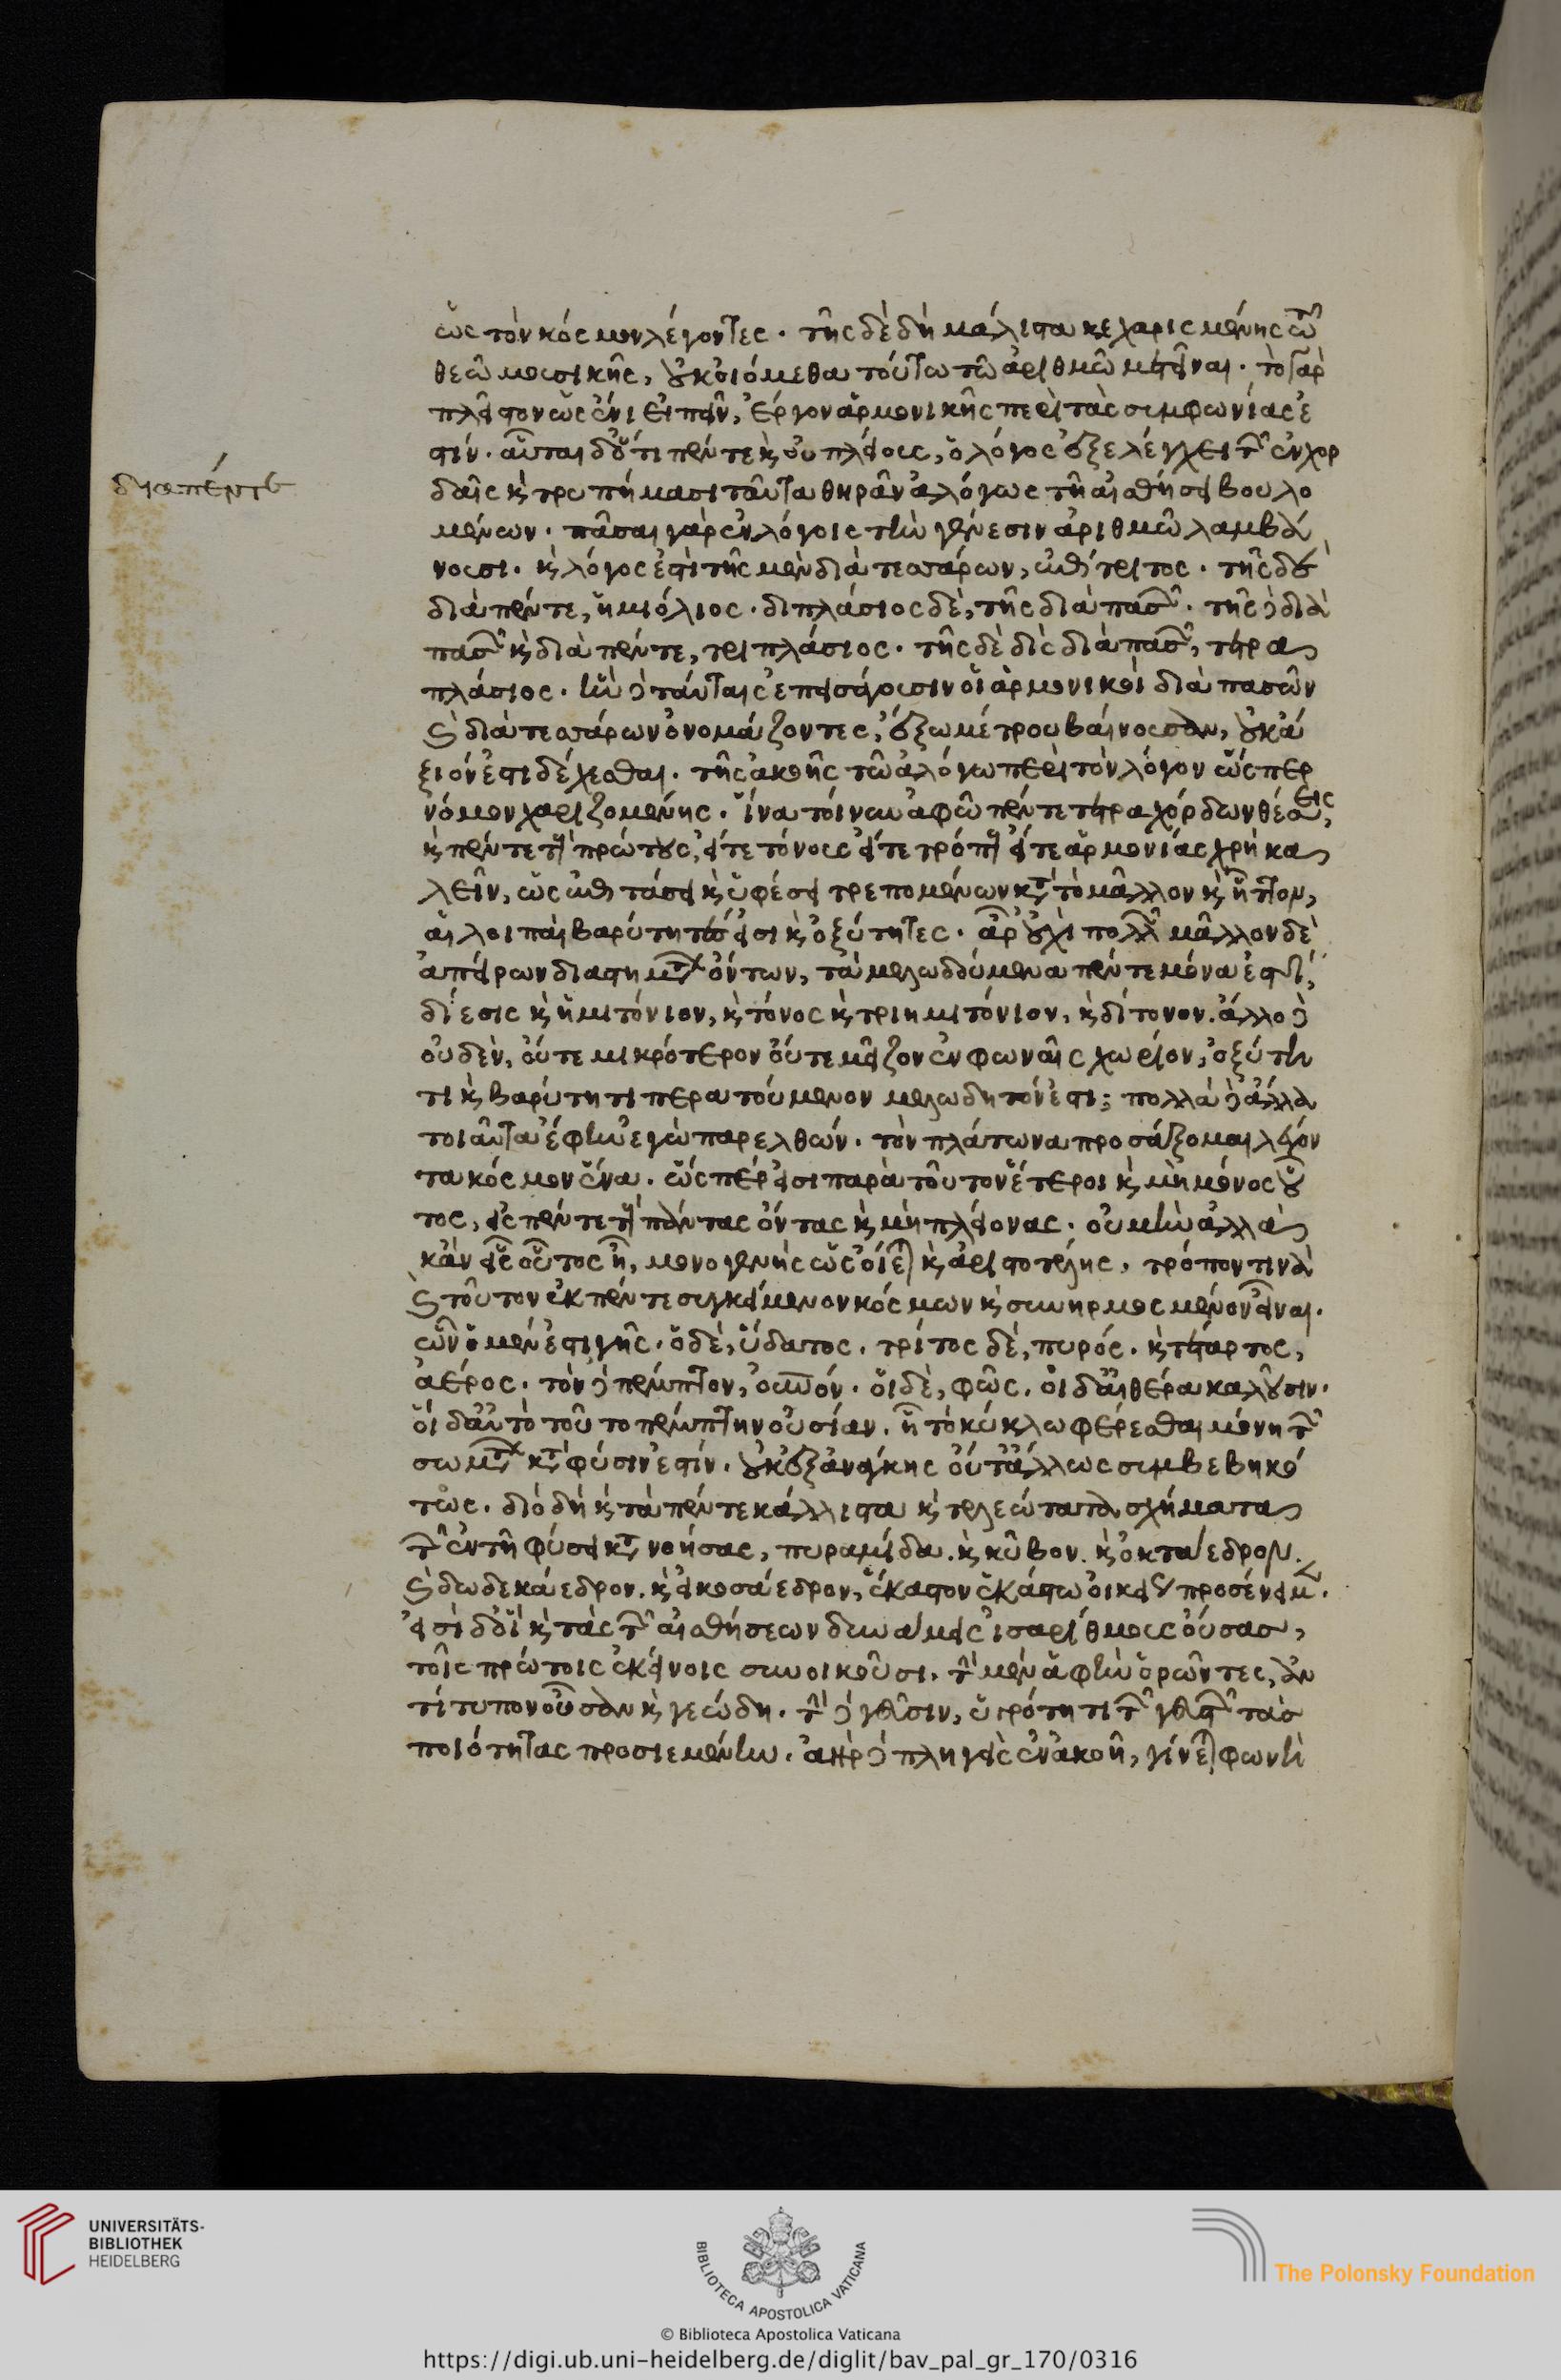 ὡς τὸν κόσμον λέγοντες. τῆς δὲ δὴ μάλιστα κεχαρισμένης τῷ
θεῷ μουσικῆς, οὐκ οἰόμεθα τούτω τῶ ἀριθμῶ μετεῖναι. τὸ γὰρ
πλεῖστον ὡς ἐνὶ εἰπεῖν, ἔργον ἁρμονικῆς περὶ τὰς συμφωνίας ἐ
στίν. αὗται δ' ὅτι πέντε καὶ οὐ πλείους, ὁ λόγος ἐξελέγχει τὸν ἐν χορ
διαπέντε
δαῖς καὶ τρυπήμασι ταῦτα θηρᾶν ἀλόγως τῆ αἰσθήσει βουλο
μένων. πᾶσαι γὰρ ἐν λόγοις τὴν γένεσιν ἀριθμῶ λαμβά
νουσι. καὶ λόγος ἐστὶ τῆς μὲν διὰ τεσσάρων, ἐπίτριτος. τῆς δὲ
διὰ πέντε, ἡμιόλιος. διπλάσιος δὲ, τῆς διὰ πασῶν. τῆς δὲ διὰ
πασῶν καὶ διὰ πέντε, τριπλάσιος. τῆς δὲ δὶς διὰ πασῶν, τετρα
πλάσιος. ἣν δὲ ταύταις ἐπεισάγουσιν οἱ ἁρμονικοὶ διὰ πασῶν
καὶ διὰ τεσσάρων ὀνομάζοντες, ἔξω μέτρου βαίνουσαν, οὐκ ἄ
ξιόν ἐστι δέχεσθαι. τῆς ἀκοῆς τῶ ἀλόγω περὶ τὸν λόγον ὥσπερ
νόμον χαριζομένης. ἵνα τοίνυν ἀφῶ πέντε τετραχόρδων θέσεις,
καὶ πέντε τοὺς πρώτους, εἴτε τόνους εἴτε τρόπους εἴτε ἁρμονίας χρὴ κα
λεῖν, ὡς ἐπιτάσει καὶ ὑφέσει τρεπομένων κατὰ τὸ μᾶλλον καὶ ἧττον,
αἱ λοιπαὶ βαρύτητές εἰσι καὶ ὀξύτητες. ἆρ' οὐχὶ πολλῶν μᾶλλον δὲ
ἀπείρων διαστημάτων ὄντων, τὰ μελωδούμενα πέντε μόνα ἐστί,
δίεσις καὶ ἡμιτόνιον, καὶ τόνος καὶ τριημιτόνιον, καὶ δίτονον. ἄλλο δὲ
οὐδὲν, οὔτε μικρότερον οὔτε μεῖζον ἐν φωναῖς χωρίον, ὀξύτη
τι καὶ βαρύτητι περατούμενον μελωδητόν ἐστι; πολλὰ δὲ ἄλλα
τοιαῦτα ἔφην ἐγὼ παρελθών. τὸν πλάτωνα προσάξομαι λέγον
τα κόσμον ἕνα. ὥσπερ εἰσι παρὰ τοῦτον ἕτεροι καὶ μὴ μόνος οὗ
τος, εἰς πέντε τοὺς πάντας ὄντας καὶ μὴ πλείονας. οὐ μὴν ἀλλὰ
κἂν εἷς οὗτος ἦ, μονογενὴς ὡς οἴεται καὶ ἀριστοτέλης, τρόπον τινὰ
καὶ τοῦτον ἐκ πέντε συγκείμενον κόσμων καὶ συνηρμοσμένον εἶναι.
ὧν ὁ μέν ἐστι γῆς. ὁ δὲ, ὕδατος. τρίτος δὲ, πυρός. καὶ τέταρτος,
ἀέρος. τὸν δὲ πέμπτον, οὐρανόν. οἱ δὲ, φῶς. οἱ δ' αἰθέρα καλοῦσιν.
οἱ δ' αὐτὸ τοῦτο πέμπτην οὐσίαν. ἧ τὸ κύκλω φέρεσθαι μόνη τῶν
σωμάτων κατὰ φύσιν ἐστίν. οὐκ ἐξ ἀνάγκης οὔτ' ἄλλως συμβεβηκό
τως. διὸ δὴ καὶ τὰ πέντε κάλλιστα καὶ τελεώτατα σχήματα
τῶν ἐν τῆ φύσει κατανοήσας, πυραμίδα. καὶ κύβον. καὶ ὀκτάεδρον.
καὶ δωδεκάεδρον. καὶ εἰκοσάεδρον, ἕκαστον ἑκάστω οἰκείως προσένειμεν.
εἰσὶ δ' οἳ καὶ τὰς τῶν αἰσθήσεων δυνάμεις ἰσαρίθμους οὔσας,
τοῖς πρώτοις ἐκείνοις συνοικοῦσι. τὴν μὲν ἁφὴν ὁρῶντες, ἀν
τίτυπον οὖσαν καὶ γεώδη. τὴν δὲ γεῦσιν, ὑγρότητι τῶν γευστῶν τὰς
ποιότητας προσιεμένην. ἀὴρ δὲ πληγεὶς ἐν ἀκοῆ, γίνεται φωνὴ
UNIVERSITÄTS-
BIBLIOTHEK
HEIDELBERG
BIBLIOTECA APOSTOLICA VATICANA
The Polonsky Foundation
© Biblioteca Apostolica Vaticana
https://digi.ub.uni-heidelberg.de/diglit/bav_pal_gr_170/0316